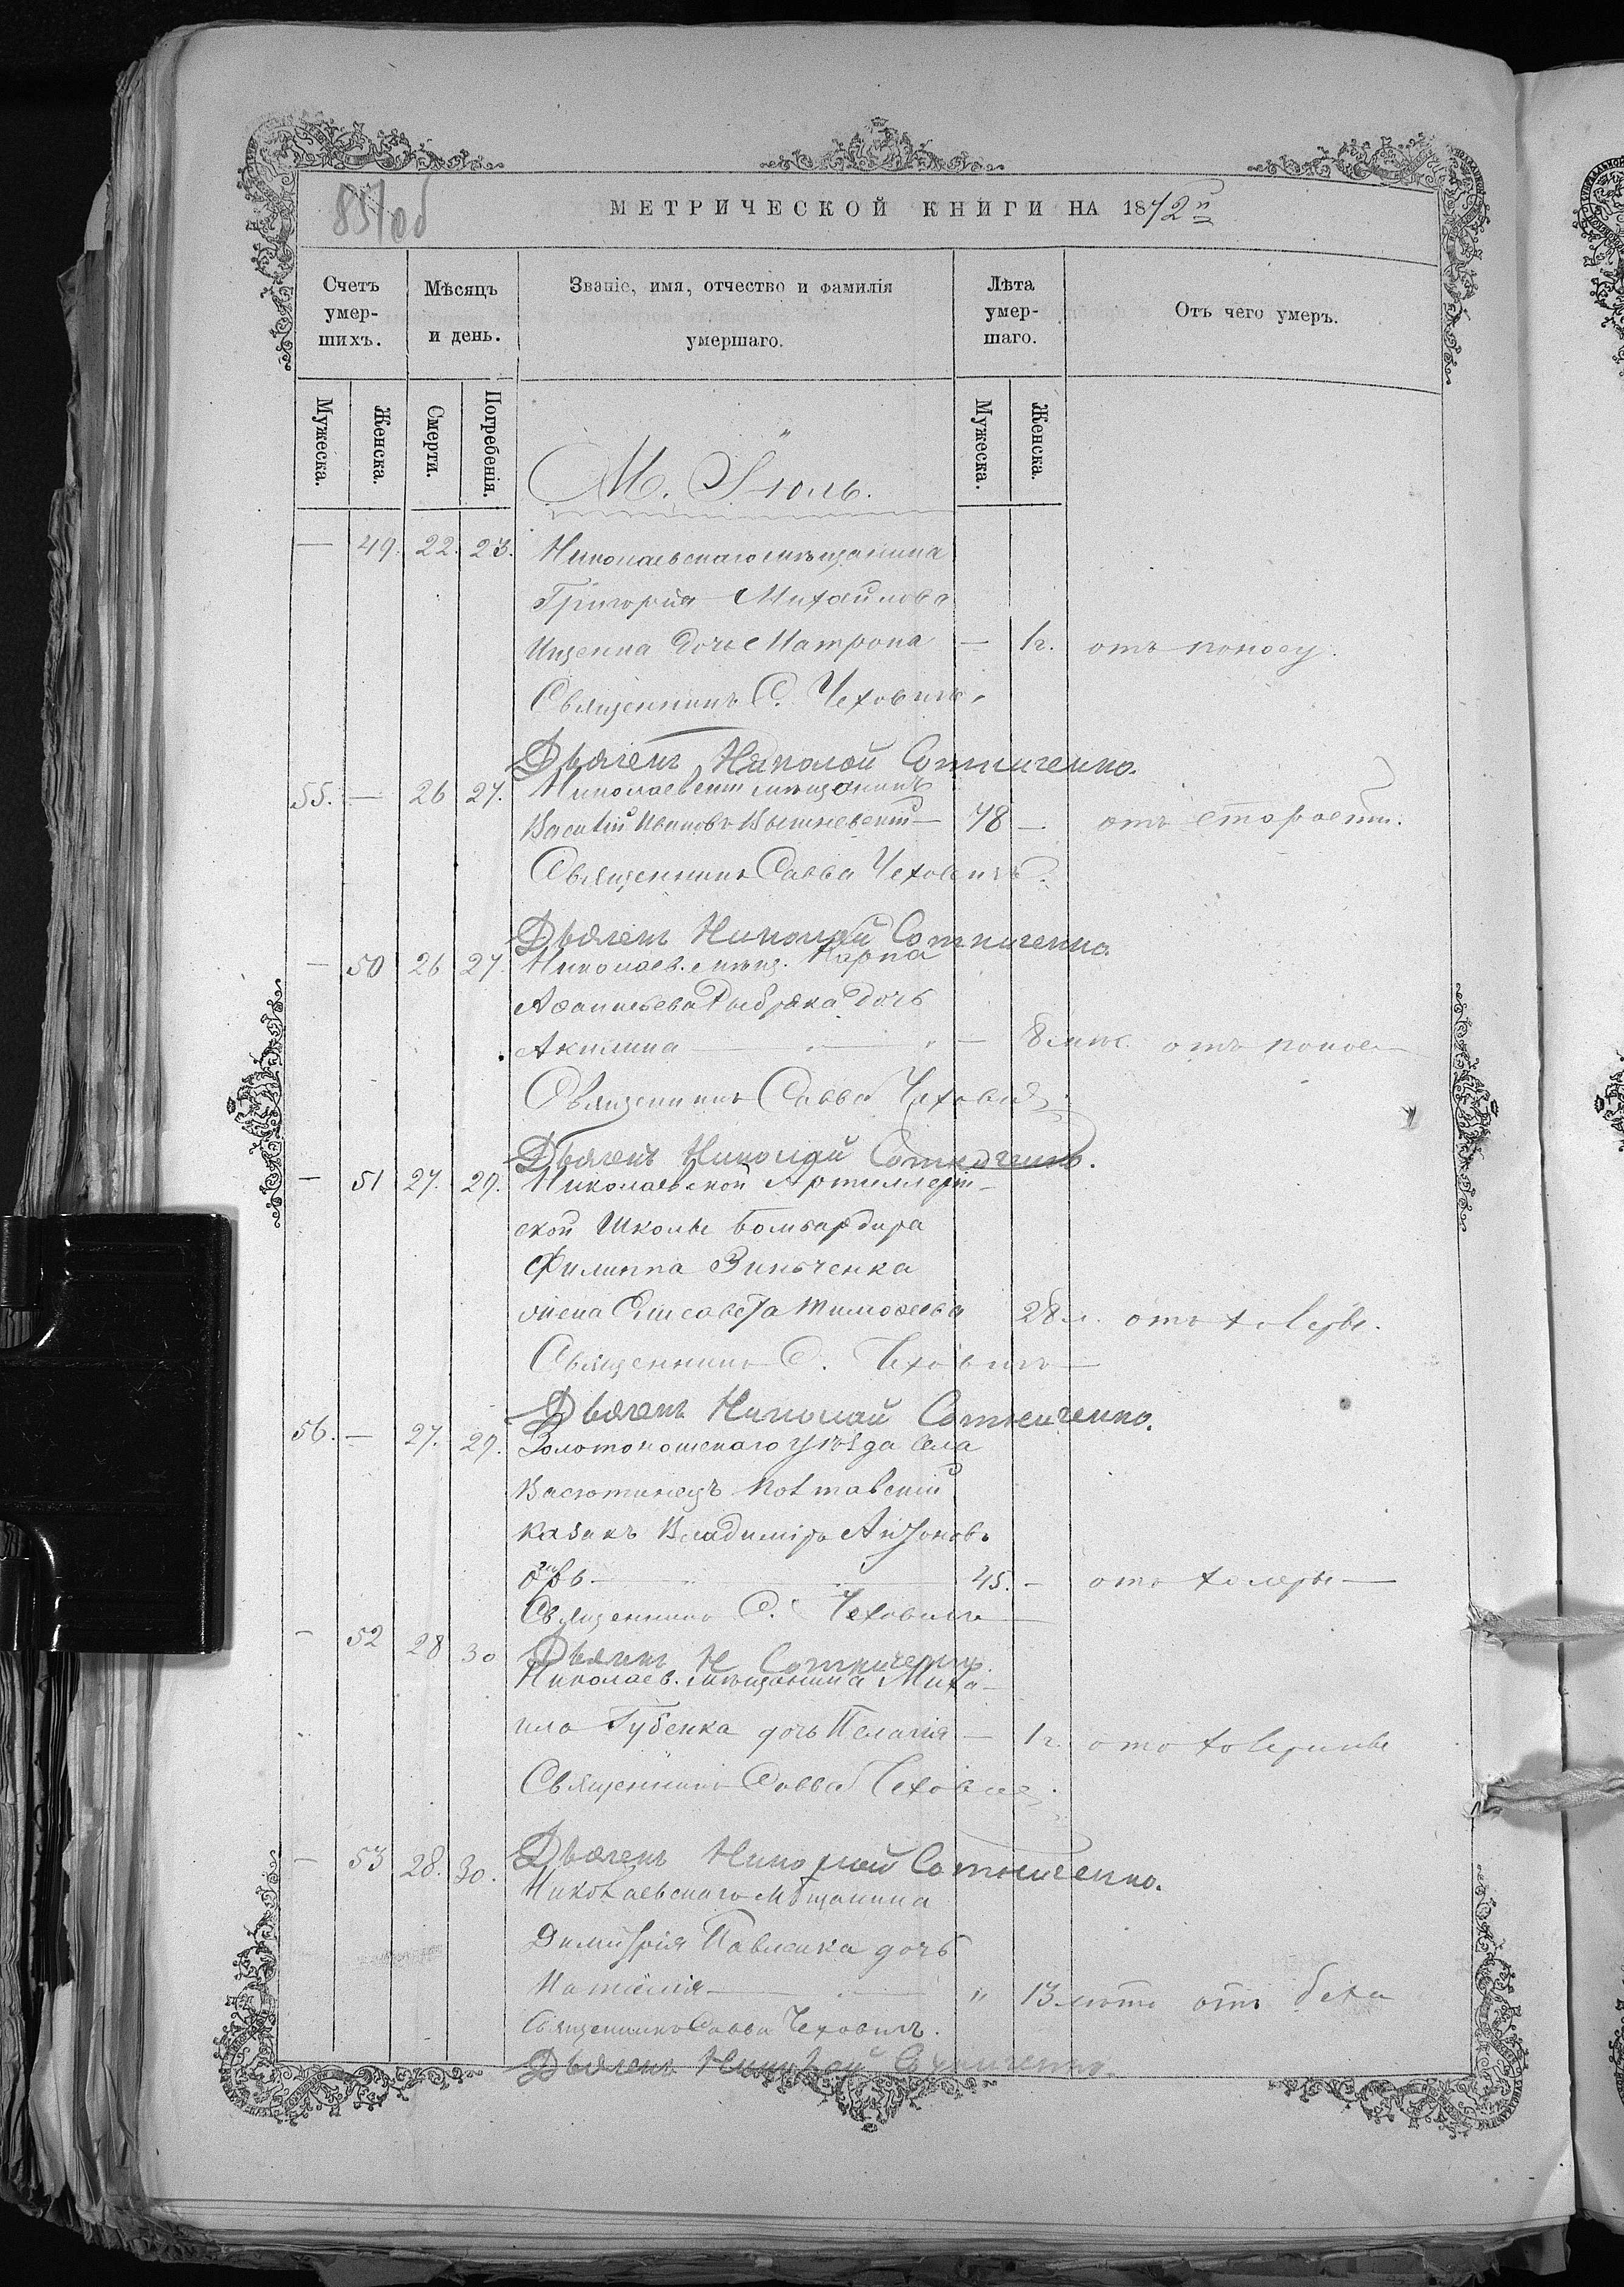 851 об
МЕТРИЧЕСКОЙ КНИГИ НА 1872й
Счетъ умер-шихъ.
Мѣсяцъ и день.
Званіе, имя, отчество и фамилія умершаго.
Лѣта умер-шаго.
Отъ чего умеръ.
Мужеска.
Женска.
Смерти.
Погребенія.
Мужеска.
Женска.
М. Іюль.
— 49. 22. 23. Николаевскаго мѣщанина
Григорія Михайлова
Ищенка дочь Матрона — 1 г. отъ поносу.
Священникъ С. Чеховичъ.
Дьячекъ Николай Сотниченко.
55. — 26 27. Николаевскій мѣщанинъ
Василій Ивановъ Вышневскій — 78 — отъ старости.
Священникъ Савва Чеховичъ.
Дьячекъ Николай Сотниченко.
— 50 26 27. Николаев. мѣщ. Карпа
Аѳанасьева Рыбрака дочь
Акилина — — 8 мѣс. отъ понос
Священникъ Савва Чеховичъ
Дьячекъ Николай Сотниченко.
— 51 27. 29. Николаевской Артиллерій-
ской Школы бомбардира
Филиппа Зинченка
жена Елисавета Тимоѳеева 28 л. отъ холеры.
Священникъ С. Чеховичъ
Дьячекъ Николай Сотниченко.
56. — 27. 29. Золотоношскаго уѣзда села
Васютинецъ Полтавскій
казакъ Владиміръ Антоновъ
45. — отъ холеры —
Священникъ С. Чеховичъ
— 52 28 30 Дьячекъ Н Сотниченко.
Николаев. мѣщанина Миха-
ила Губенка дочь Пелагія — 1 г. отъ холерины
Священникъ Савва Чеховичъ
— 53 28. 30. Дьячекъ Николай Сотниченко.
Николаевскаго мѣщанина
Димитрія Павленка дочь
Наталія — " 13 лѣтъ отъ
Священникъ Савва Чеховичъ.
Дьячекъ Николай Сотниченко.